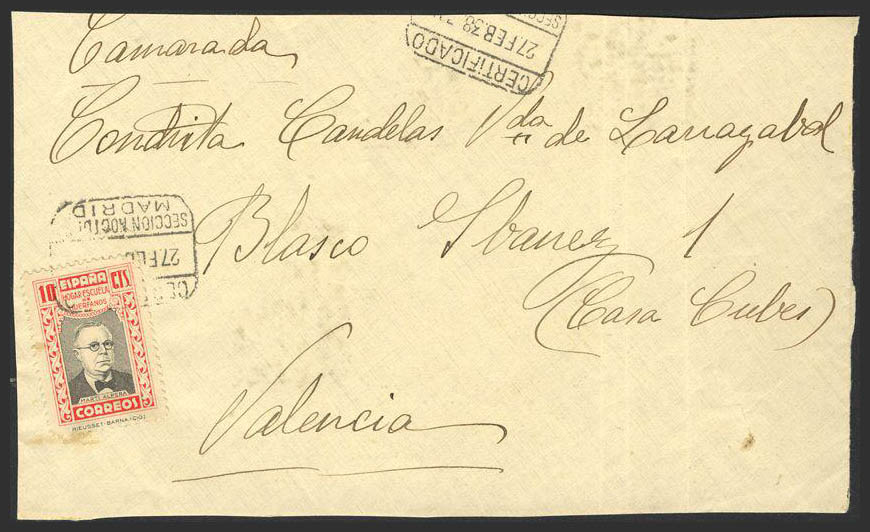 Camarada
CERTIFICADO
27.FEB 38
Conchita Candelas Vda de Larrazabal
MADRID
SECCION NOCT
27 FEB
CE
Blasco Ibanez 1
(Casa Cubes)
10 ESPAÑA CTS.
HOGAR ESCUELA
DE
HUERFANOS
MARTI ALPERA
CORREOS
RIEUSSET-BARNA
Valencia